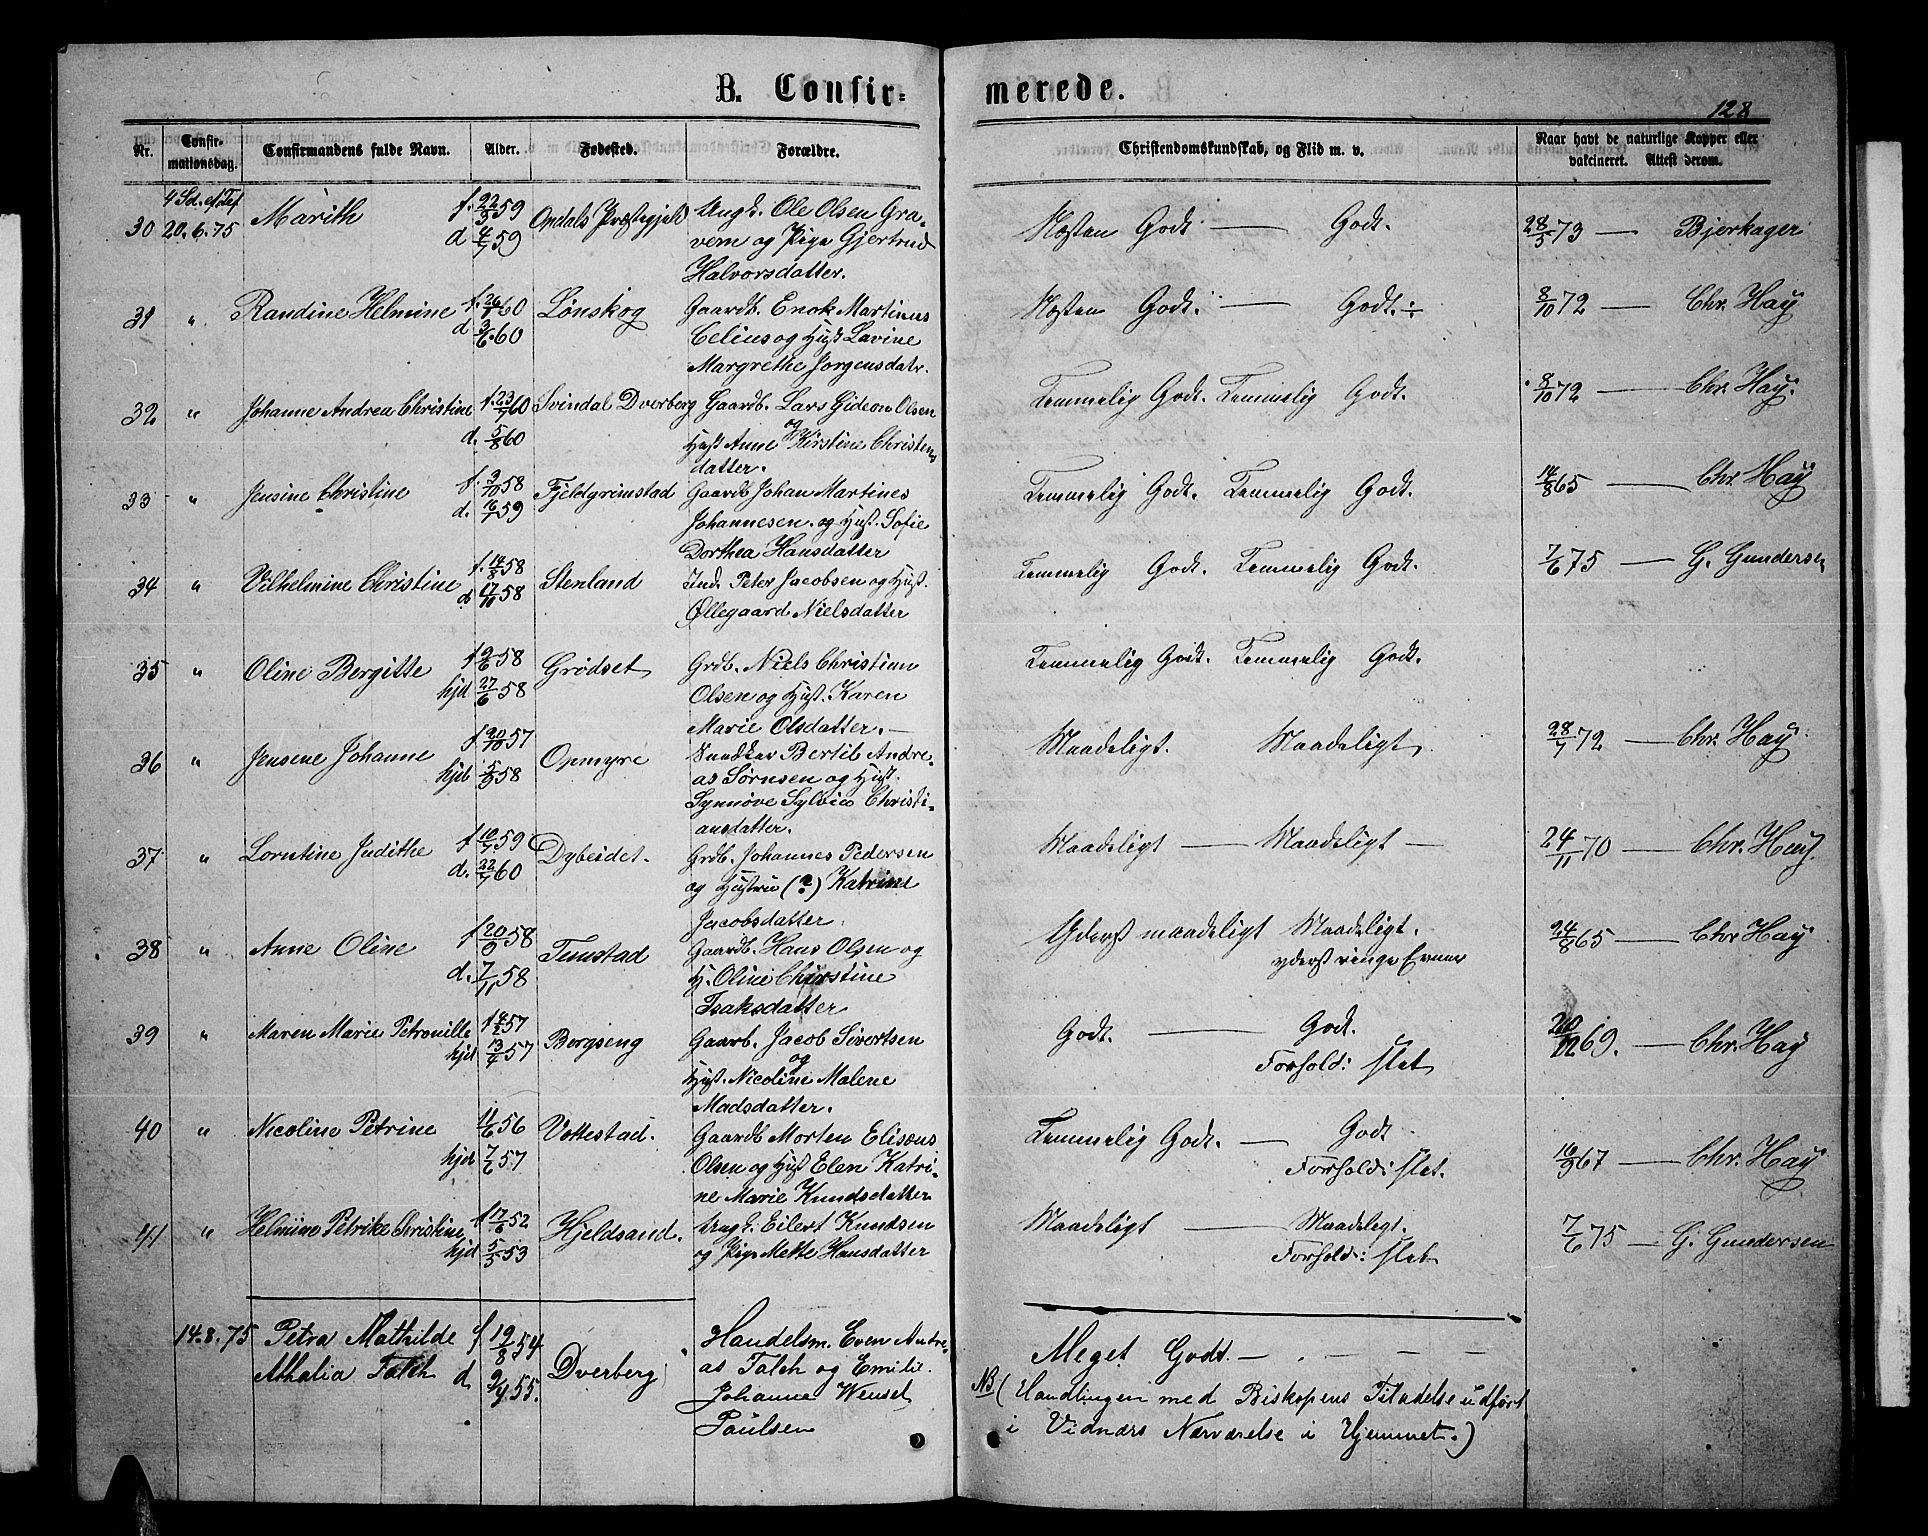 B. Confir-
merede.
128
Nr.
Confir-
mationsdag.
Confirmandens fulde Navn.
Alder.
Fødested.
Forældre.
Christendomskundskab, og Flid m. v.
Naar havt de naturlige Kopper eller
vakcineret. Attest derom.
4 Sd. ef Tref
30 20.6.75 Marith f. 22/5 59 Opdals Præstegjeld Ungk. Ole Olsen Gra- Næsten Godt — Godt. 28/5 73 — Bjerkager
d 4/7 59 vem og Pige Gjertrud
Halvorsdatter.
31 " Randine Helmine f. 26/1 60 Lønskog Gaardb. Enok Martinus Næsten Godt. — Godt.÷ 8/10 72 — Chr. Hay
d 3/6 60 Celius og Hust Lavine
Margrethe Jørgensdatr.
32 " Johanne Andrea Christine f. 23/7 60 Svindal Dverberg Gaardb. Lars Gideon Olsen Temmelig Godt. Temmelig Godt. 8/10 72 — Chr. Hay.
d. 5/8 60 og Hust Anne Kirstine Christens
datter.
33 " Jensine Christine f. 3/10 58 Fjeldgrimstad Gaardb Johan Martines Temmelig Godt. Temmelig Godt. 14/8 65 — Chr. Hay
d. 16/1 59 Johannesen og Hust. Sofie
Dorthea Hansdatter
34 " Vilhelmine Christine f. 14/8 58 Stenland Ind. Peter Jacobsen og Hust. Temmelig Godt. Temmelig Godt. 7/6 75 — G. Gundersen
d 17/10 58 Øllegaard Nielsdatter
35 " Oline Bergitte f 9/6 58 Grødset Grdb. Niels Christian Temmelig Godt. Temmelig Godt.
hjd 27/6 58 Olsen og Hust. Karen
Marie Olsdatter. —
36 " Jensene Johanne f 20/10 57 Opmyre Bertil Andre- Maadeligt. Maadeligt 28/7 72 — Chr. Hay
hjd 5/9 58 as Sørnsen og Hust.
Synnøve Sylvia Christi-
ansdatter.
37 " Lorntine Judithe f 10/7 59 Dybeidet. Grdb. Johannes Pedersen Maadeligt — Maadeligt — 24/11 70 — Chr. Hay
d. 22/7 60 og Hustru (?) Katrine
Jacobsdatter
38 " Anne Oline f 20/9 58 Tuustad Gaardb. Hans Olsen og Yderst maadeligt Maadeligt. 24/8 65 — Chr Hay
d. 7/11 58 H. Oline Christine yderst ringe Evner
Isaksdatter
39 " Maren Marie Petronille f 4/2 57 Borgseng Gaarb. Jacob Sivertsen Godt. — Godt. 20/12 69. — Chr. Hay
hjd 13/4 57 og Hust. Nicoline Malene Forhold: slet
Madsdatter.
40 " Nicoline Petrine 11/6 56 Vottestad. Gaardb Morten Elisæus Temmelig Godt. — Godt 16/9 67 — Chr. Hay
hjd 7/6 57 Olsen og Hust Elen Katri- Forhold: slet.
ne Marie Knudsdatter
41 " Helmine Petrike Christine f 17/6 52 Hjeldsand. Ungk. Eilert Knudsen Maadeligt — Maadeligt. 7/6 75 — G. Gundersen
hjd 5/5 53 og Pige Mette Hansdatter Forhold: slet
14.8.75 Petra Mathilde f 19/8 54 Dverberg Handelsm. Even Andre- Meget Godt. —
Athalia Falch d 9/9 55. as Falch og Emilie NB (Handlingen med Biskopens Tiladelse udført
Johanne Wensel i Vidnærs Nærværelse i Hjemmet.)
Paulsen